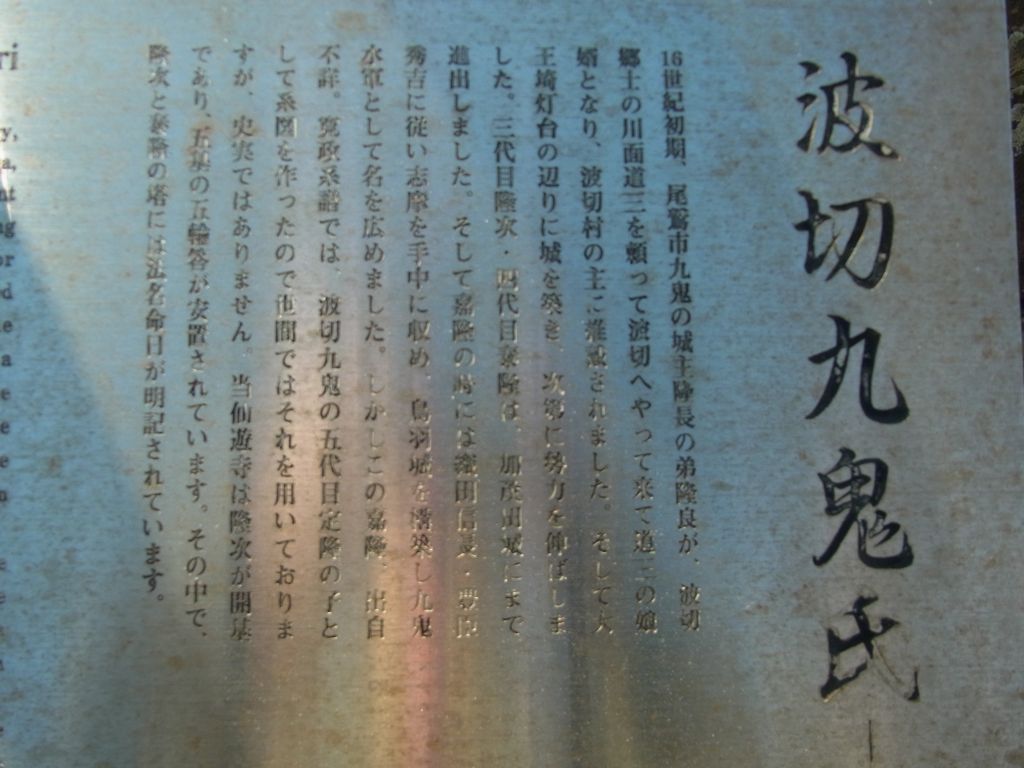 波切九鬼氏
16世紀初期、尾鷲市九鬼の城主隆長の弟隆良が、波切
郷士の川面道三を頼って波切へやって来て道三の娘
婿となり、波切村の主に推戴されました。そして大
王埼灯台の辺りに城を築き、次第に勢力を伸ばしま
した。三代目隆次・四代目泰隆は、加茂田城にまで
進出しました。そして嘉隆の時には織田信長・豊臣
秀吉に従い志摩を手中に収め、鳥羽城を構築し九鬼
水軍として名を広めました。しかしこの嘉隆、出自
不詳。寛政系譜では、波切九鬼の五代目定隆の子と
して系図を作ったので世間ではそれを用いておりま
すが、史実ではありません。当仙遊寺は隆次が開基
であり、五基の五輪塔が安置されています。その中で、
隆次と泰隆の塔には法名命日が明記されています。
ri